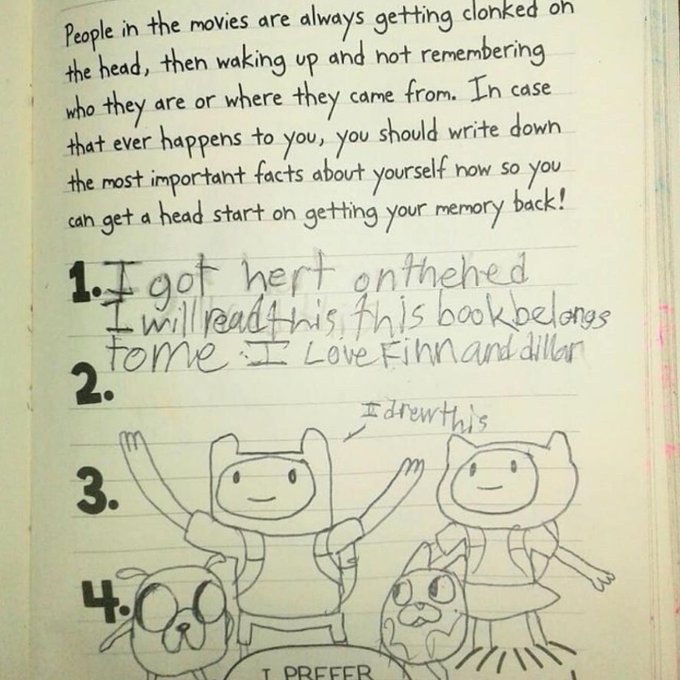 People in the movies are always getting clonked on
the head, then waking up and not remembering
who they are or where they came from. In case
that ever happens to you, you should write down
the most important facts about yourself now so you
can get a head start on getting your memory back!
1. I got hert onthehed
I will read this this book belongs
to me. I Love Finn and dillan
2.
I drew this
3.
4.
I PREFER